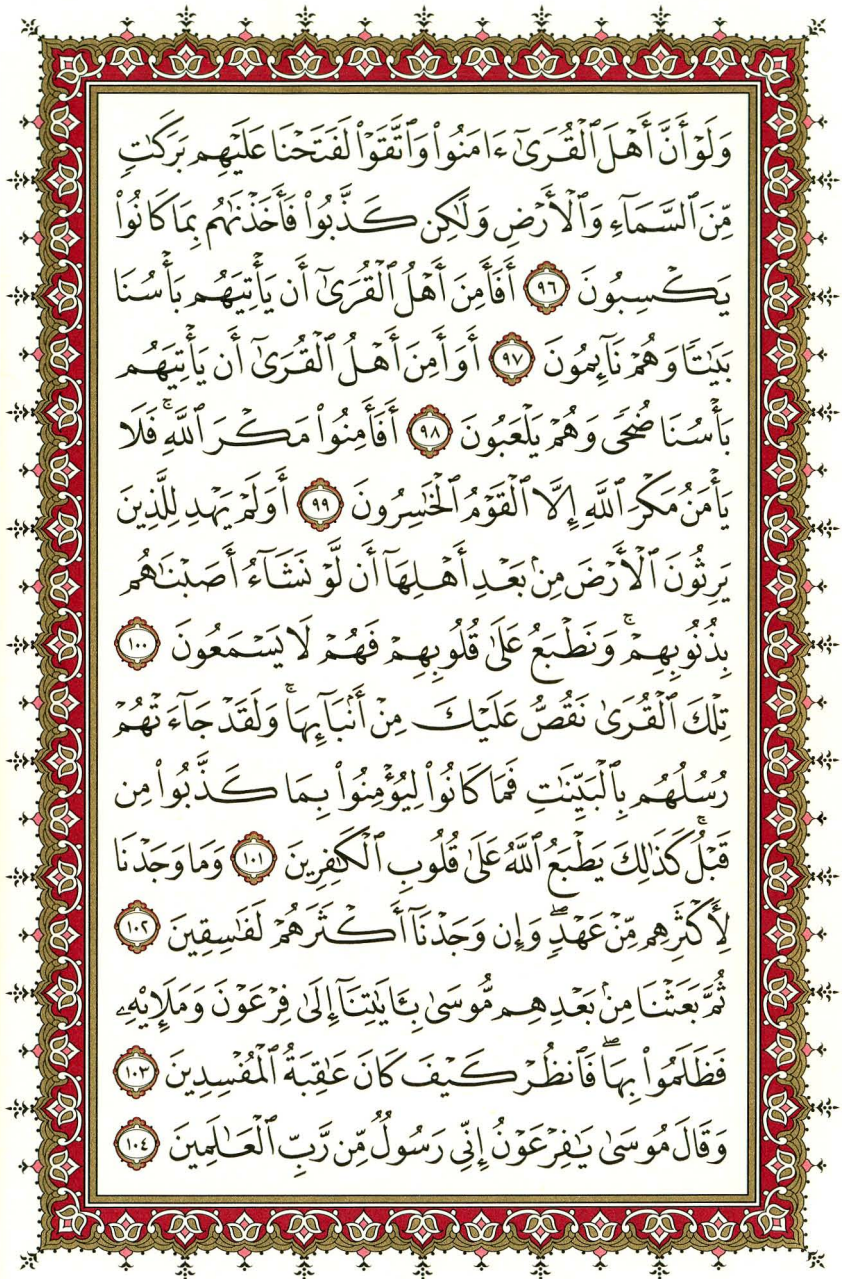 وَلَوۡ أَنَّ أَهۡلَ ٱلۡقُرَىٰٓ ءَامَنُواْ وَٱتَّقَوۡاْ لَفَتَحۡنَا عَلَيۡهِم بَرَكَٰتٖ
مِّنَ ٱلسَّمَآءِ وَٱلۡأَرۡضِ وَلَٰكِن كَذَّبُواْ فَأَخَذۡنَٰهُم بِمَا كَانُواْ
يَكۡسِبُونَ ٩٦ أَفَأَمِنَ أَهۡلُ ٱلۡقُرَىٰٓ أَن يَأۡتِيَهُم بَأۡسُنَا
بَيَٰتٗا وَهُمۡ نَآئِمُونَ ٩٧ أَوَ أَمِنَ أَهۡلُ ٱلۡقُرَىٰٓ أَن يَأۡتِيَهُم
بَأۡسُنَا ضُحٗى وَهُمۡ يَلۡعَبُونَ ٩٨ أَفَأَمِنُواْ مَكۡرَ ٱللَّهِۚ فَلَا
يَأۡمَنُ مَكۡرَ ٱللَّهِ إِلَّا ٱلۡقَوۡمُ ٱلۡخَٰسِرُونَ ٩٩ أَوَلَمۡ يَهۡدِ لِلَّذِينَ
يَرِثُونَ ٱلۡأَرۡضَ مِنۢ بَعۡدِ أَهۡلِهَآ أَن لَّوۡ نَشَآءُ أَصَبۡنَٰهُم
بِذُنُوبِهِمۡۚ وَنَطۡبَعُ عَلَىٰ قُلُوبِهِمۡ فَهُمۡ لَا يَسۡمَعُونَ ١٠٠
تِلۡكَ ٱلۡقُرَىٰ نَقُصُّ عَلَيۡكَ مِنۡ أَنۢبَآئِهَاۚ وَلَقَدۡ جَآءَتۡهُمۡ
رُسُلُهُم بِٱلۡبَيِّنَٰتِ فَمَا كَانُواْ لِيُؤۡمِنُواْ بِمَا كَذَّبُواْ مِن
قَبۡلُۚ كَذَٰلِكَ يَطۡبَعُ ٱللَّهُ عَلَىٰ قُلُوبِ ٱلۡكَٰفِرِينَ ١٠١ وَمَا وَجَدۡنَا
لِأَكۡثَرِهِم مِّنۡ عَهۡدٖۖ وَإِن وَجَدۡنَآ أَكۡثَرَهُمۡ لَفَٰسِقِينَ ١٠٢
ثُمَّ بَعَثۡنَا مِنۢ بَعۡدِهِم مُّوسَىٰ بِـَٔايَٰتِنَآ إِلَىٰ فِرۡعَوۡنَ وَمَلَإِيْهِۦ
فَظَلَمُواْ بِهَاۖ فَٱنظُرۡ كَيۡفَ كَانَ عَٰقِبَةُ ٱلۡمُفۡسِدِينَ ١٠٣
وَقَالَ مُوسَىٰ يَٰفِرۡعَوۡنُ إِنِّي رَسُولٞ مِّن رَّبِّ ٱلۡعَٰلَمِينَ ١٠٤